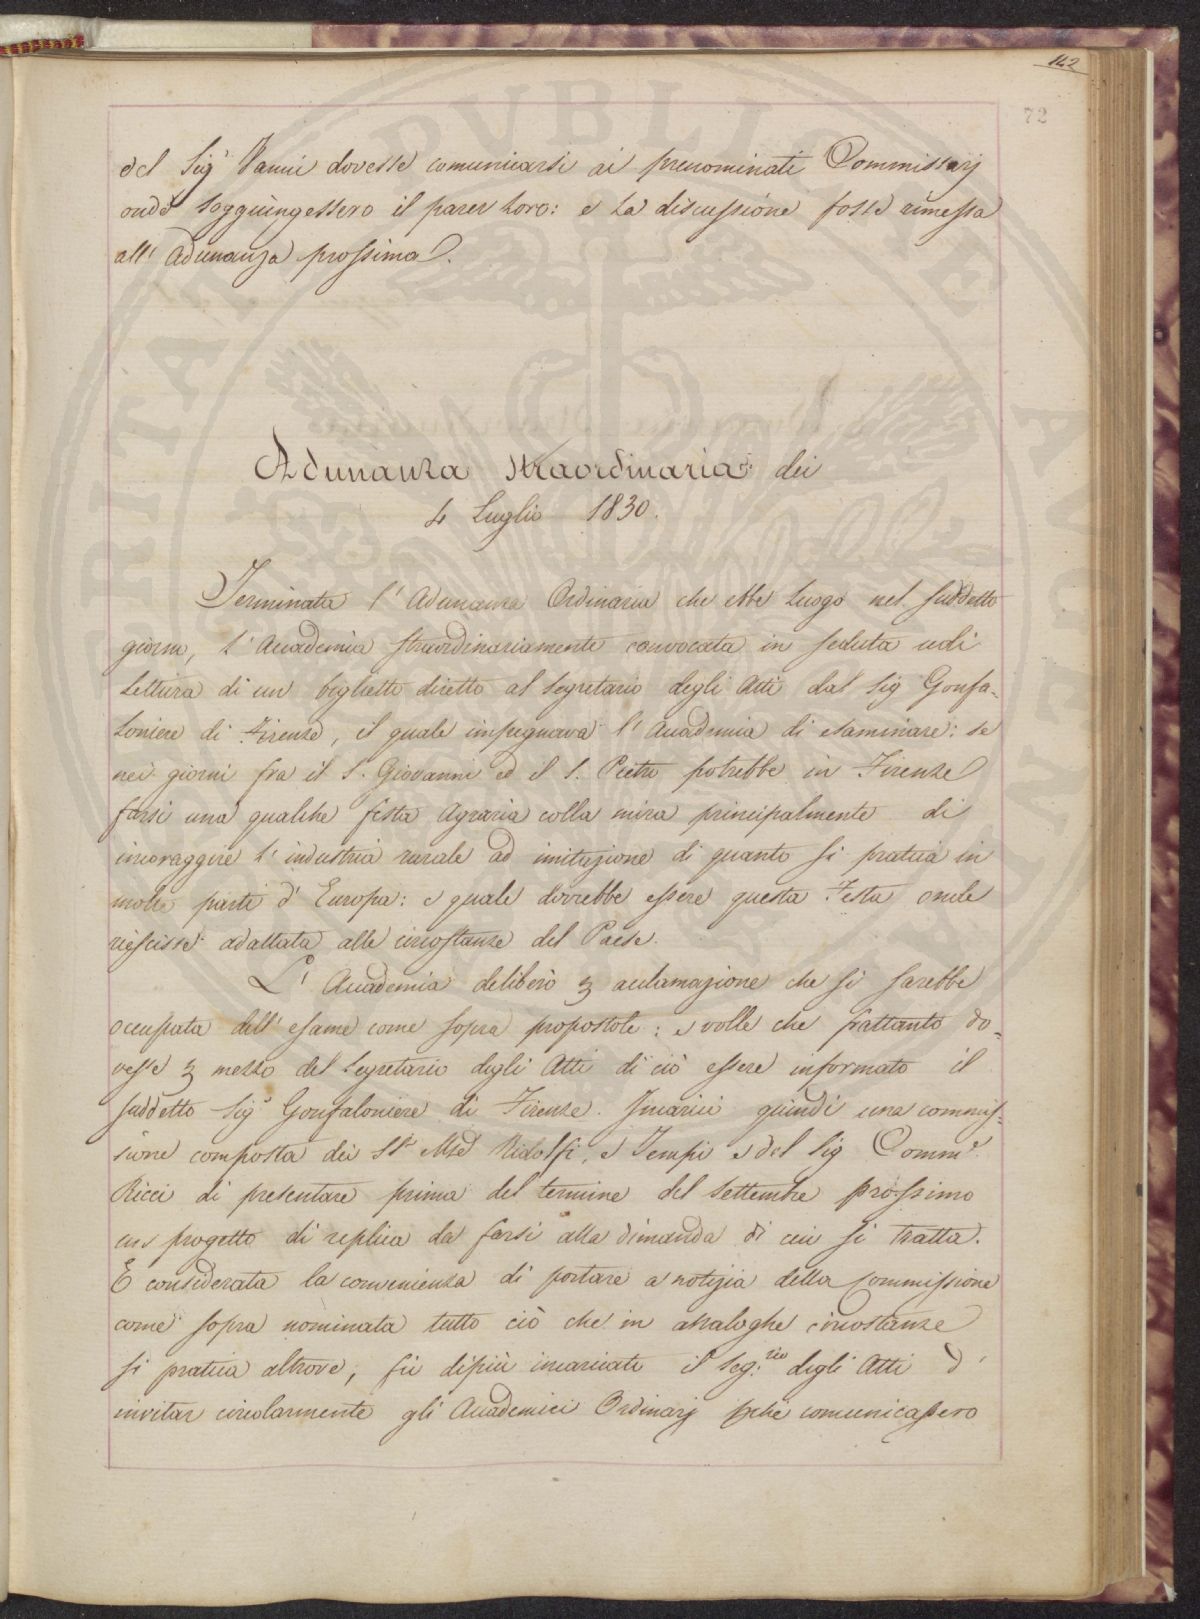 142
72
del Sig.r Vanni dovesse comunicarsi ai prenominati Commissarj
onde soggiungessero il parer loro: e la discussione fosse rimessa
all' Adunanza prossima.
Adunanza Straordinaria dei
4 Luglio 1830.
Terminata l' Adunanza Ordinaria che ebbe luogo nel suddetto
giorno, l' Accademia straordinariamente convocata in seduta udì
Lettura di un biglietto diretto al Segretario degli Atti dal Sig Gonfa-
loniere di Firenze, il quale impegnava l' Accademia di esaminare: se
nei giorni fra il S. Giovanni ed il S. Pietro potrebbe in Firenze
farsi una qualche festa Agraria colla mira principalmente di
incoraggire l' industria rurale ad imitazione di quanto si pratica in
molte parti d' Europa: e quale dovrebbe essere questa Festa onde
riescisse adattata alle circostanze del Paese.
L' Accademia deliberò p acclamazione che si sarebbe
occupata dell' esame come sopra propostole: e volle che frattanto do-
vesse p mezzo del Segretario degli Atti di ciò essere informato il
suddetto Sig.r Gonfaloniere di Firenze. Incaricò quindi una commis-
sione composta dei SS.ri Mse Ridolfi, e Tempi e del Sig Comm.e
Ricci di presentare prima del termine del Settembre prossimo
un progetto di replica da farsi alla dimanda di cui si tratta.
E considerata la convenienza di portare a notizia della commissione
come sopra nominata tutto ciò che in analoghe circostanze
si pratica altrove, fù dipiù incaricato il Seg.rio degli Atti d'
invitar circolarmente gli Accademici Ordinarj pchè comunicassero
PVBLICAE